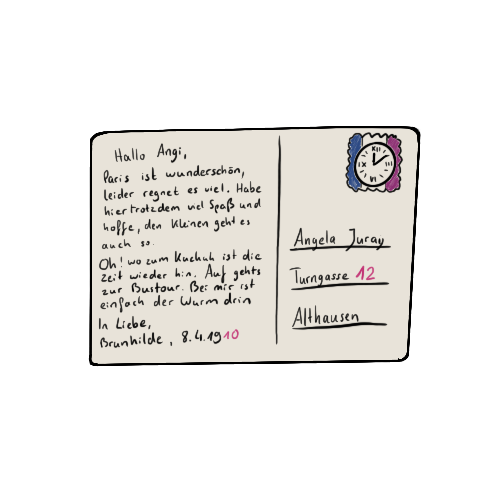 Hallo Angi,
Paris ist wunderschön,
leider regnet es viel. Habe
hier trotzdem viel Spaß und
hoffe, den Kleinen geht es
auch so.
Oh! wo zum Kuckuk ist die
Zeit wieder hin. Auf gehts
zur Bustour. Bei mir ist
einfach der Wurm drin
In Liebe,
Brunhilde, 8.4.1910
XII
III
VI
IX
Angela Juray
Turngasse 12
Althausen